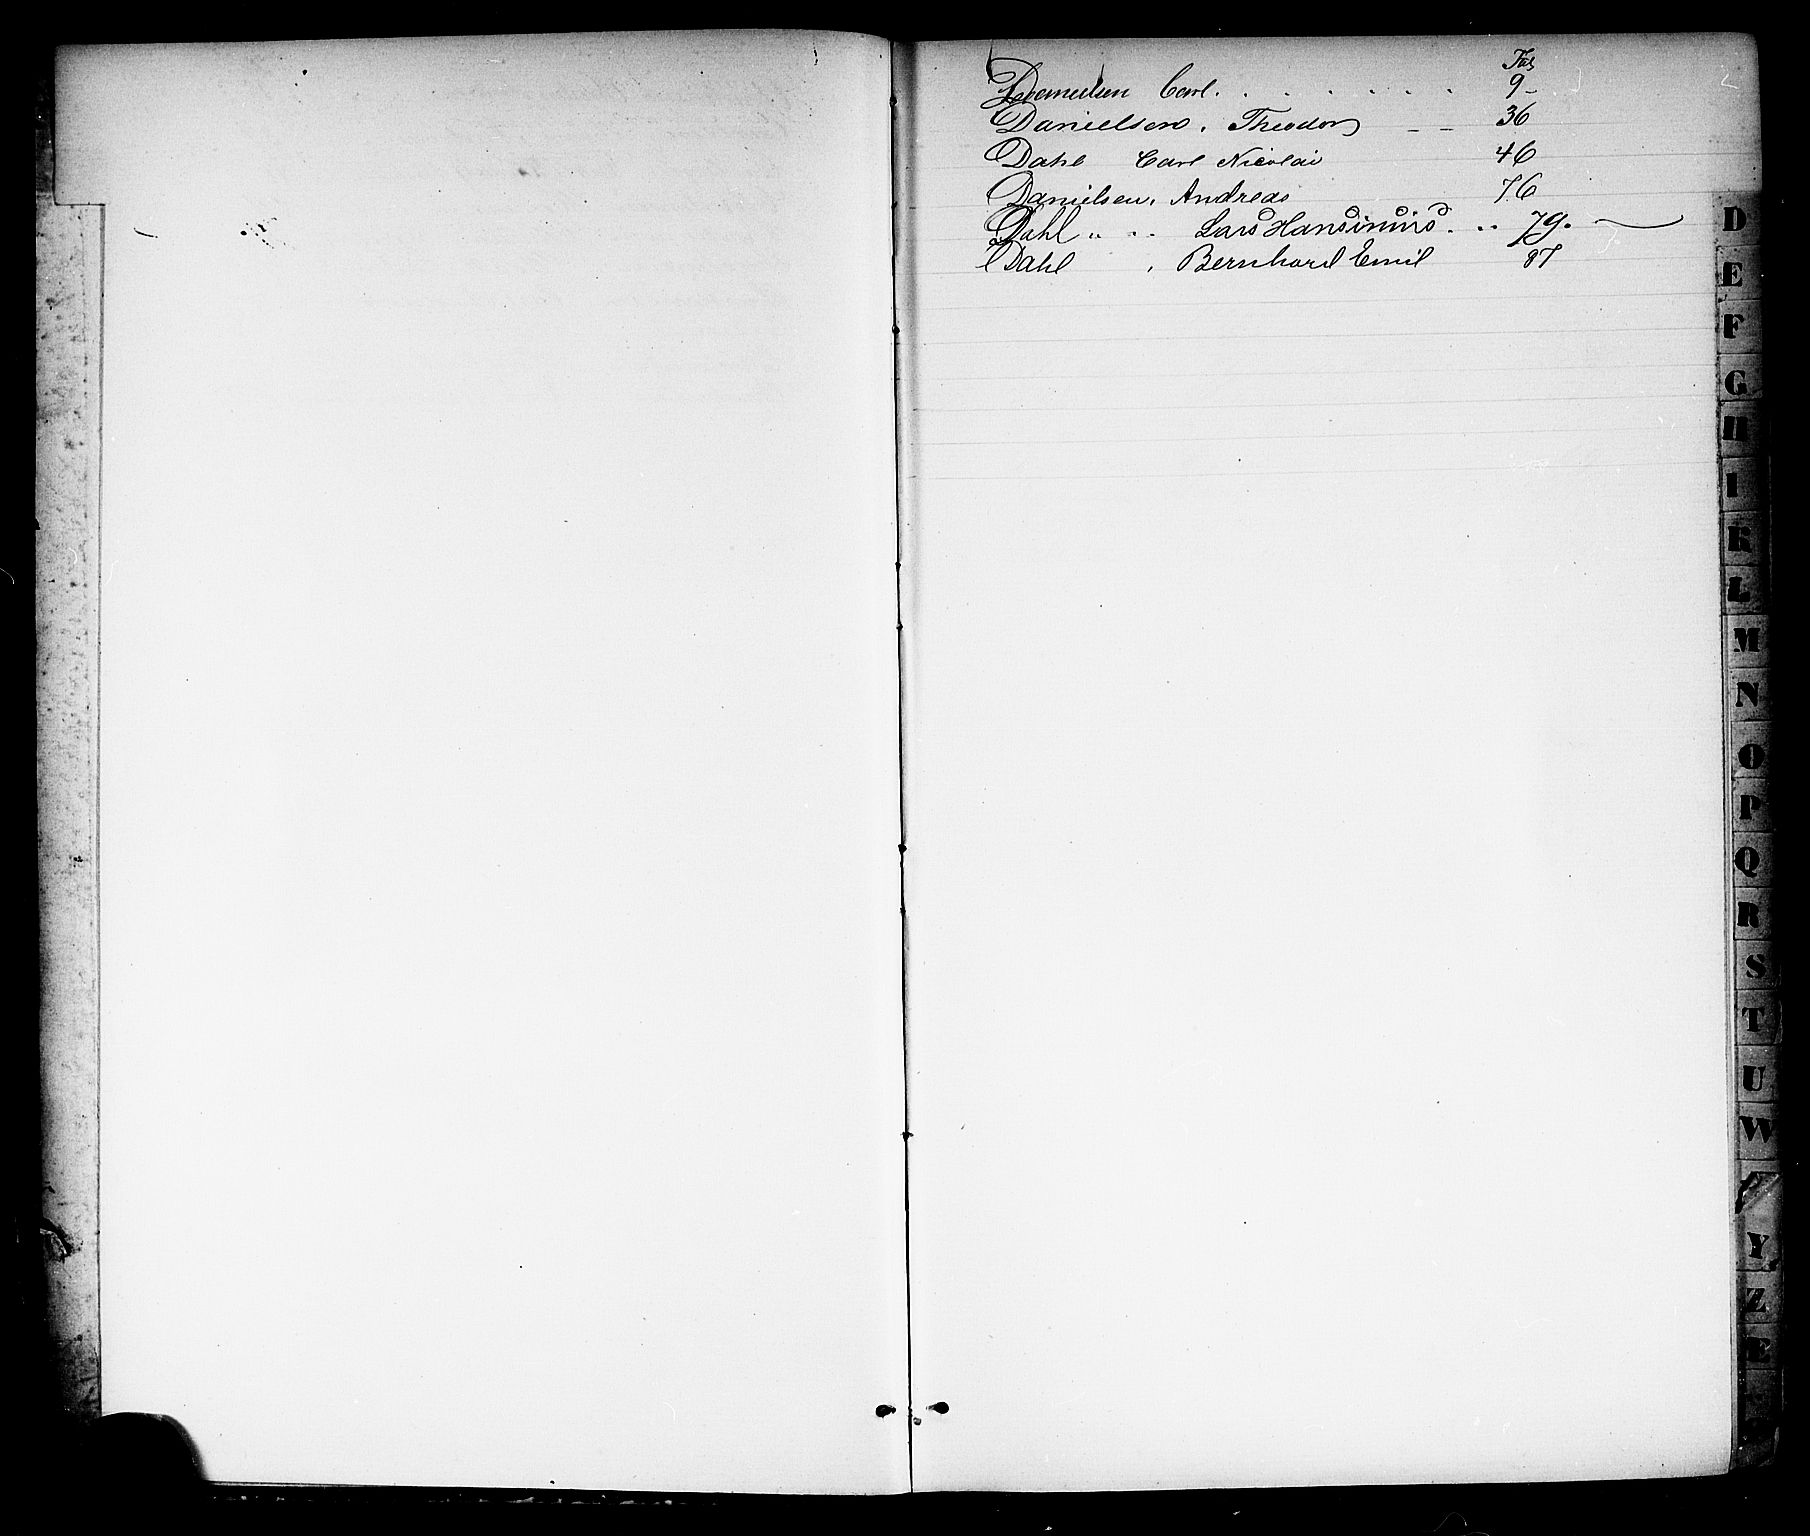 Danielsen Carl. . . . . . . . 9-
Danielsen, Theodor - - 36
Dahl Carl Nicolai 46
Danielsen, Andreas 76
Dahl " . . Lars Hansinius. . . 79.
Dahl , Bernhard Emil 87
D
E
F
G
H
I
K
L
M
N
O
P
Q
R
S
T
U
W
Y
Z